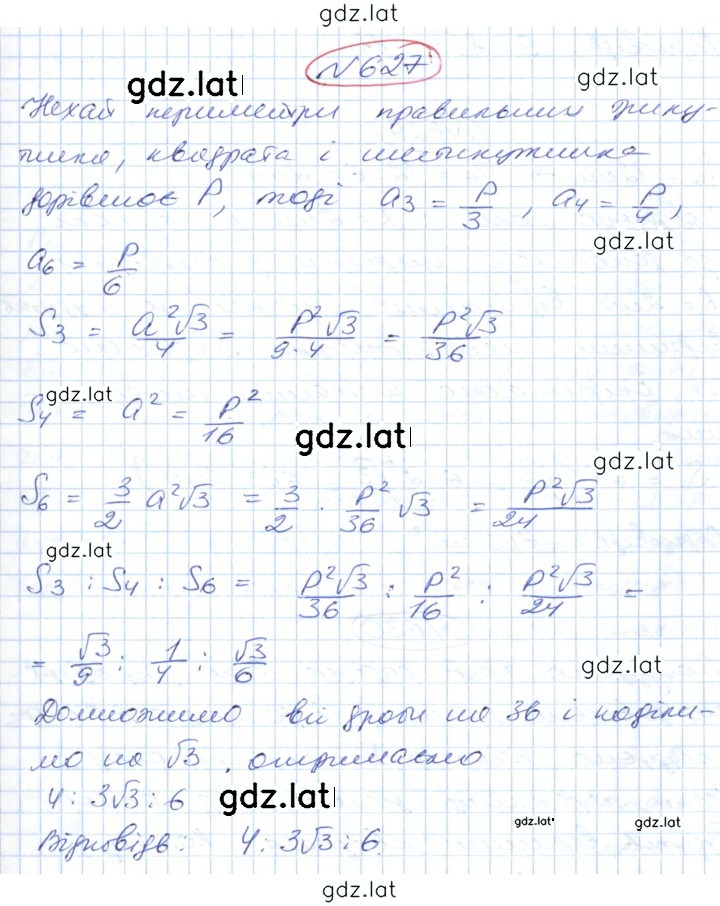 gdz.lat
№627
gdz.lat
Нехай периметри правильних трику-
тника, квадрата і шестикутника
дорівнює P, тоді a₃ = P/3, a₄ = P/4,
gdz.lat
a₆ = P/6
S₃ = a²√3/4 = P²√3/9·4 = P²√3/36
gdz.lat
S₄ = a² = P²/16
gdz.lat
gdz.lat
S₆ = 3/2 a²√3 = 3/2 · P²/36 √3 = P²√3/24
gdz.lat
S₃ : S₄ : S₆ = P²√3/36 : P²/16 : P²√3/24 =
= √3/9 : 1/4 : √3/6
gdz.lat
Домножимо всі дроби на 36 і поділи-
мо на √3, отримаємо
4 : 3√3 : 6
gdz.lat
Відповідь: 4 : 3√3 : 6
gdz.lat
gdz.lat
gdz.lat